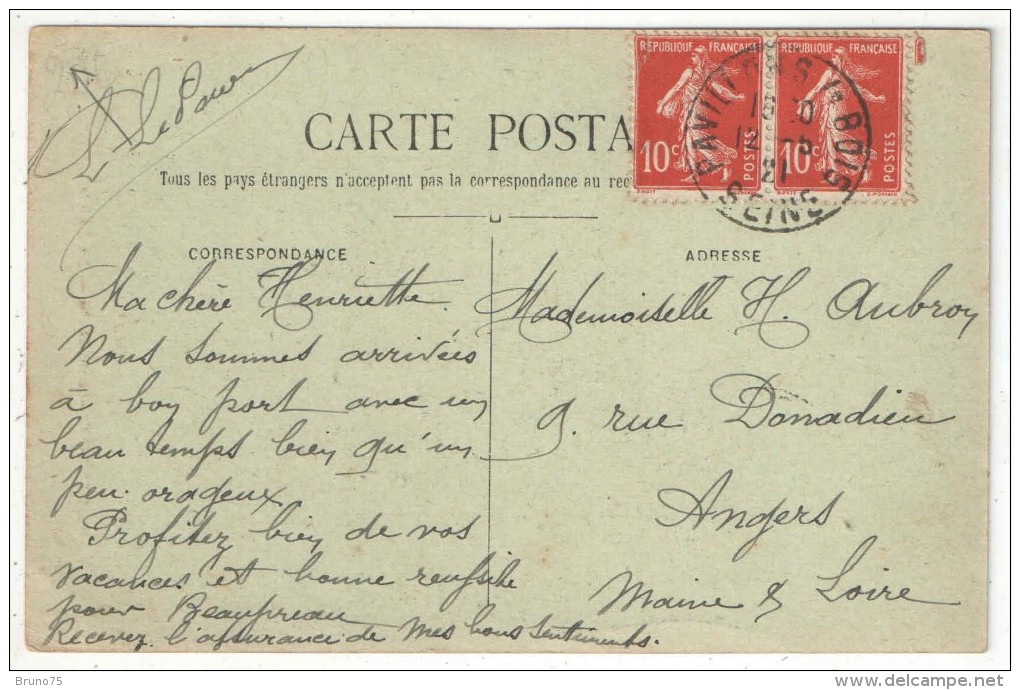 RÉPUBLIQUE FRANÇAISE
10c POSTES
RÉPUBLIQUE FRANÇAISE
10c POSTES
PAVILLONS S/s BOIS
12 -5
21
SEINE
CARTE POSTA
Tous les pays étrangers n'acceptent pas la correspondance au rec
CORRESPONDANCE
ADRESSE
Ma chère Henriette
Nous sommes arrivées
à bon port avec un
beau temps bien qu'un
peu orageux
Profitez bien de vos
vacances et bonne reussite
pour Beaupreau
Recevez l'assurance de mes bons sentiments.
Mademoiselle H. Aubron
9. rue Donadieu
Angers
Maine & Loire
Bruno75
delcampe.net